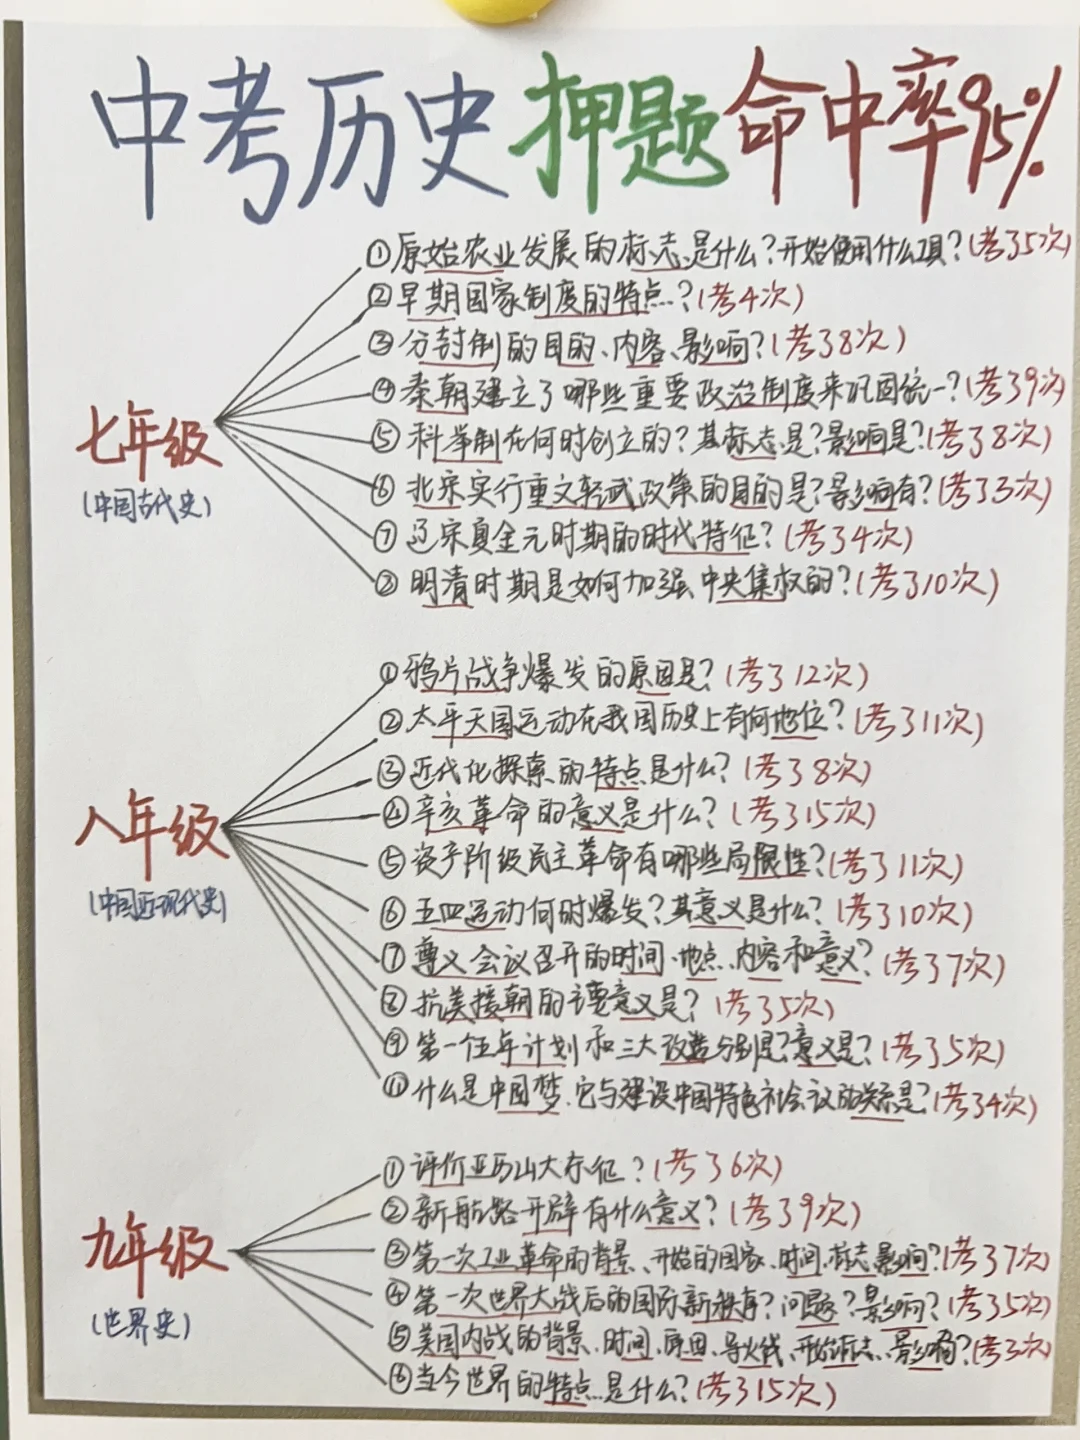 中考历史押题命中率95%
七年级
(中国古代史)
①原始农业发展的标志是什么?开始使用什么工具?(考了5次)
②早期国家制度的特点?(考4次)
③分封制的目的、内容、影响?(考了8次)
④秦朝建立了哪些重要政治制度来巩固统一?(考了9次)
⑤科举制在何时创立的?其标志是?影响是?(考了8次)
⑥北宋实行重文轻武政策的目的是?影响有?(考了3次)
⑦辽宋夏金元时期的时代特征?(考了4次)
⑧明清时期是如何加强中央集权的?(考了10次)
八年级
(中国近现代史)
①鸦片战争爆发的原因是?(考了12次)
②太平天国运动在我国历史上有何地位?(考了11次)
③近代化探索的特点是什么?(考了8次)
④辛亥革命的意义是什么?(考了15次)
⑤资产阶级民主革命有哪些局限性?(考了11次)
⑥五四运动何时爆发?其意义是什么?(考了10次)
⑦尊义会议召开的时间、地点、内容和意义?(考了7次)
⑧抗美援朝的主要意义是?(考了5次)
⑨第一伍年计划和三大改造分别是?意义是?(考了5次)
什么是中国梦.它与建设中国特色社会议的关系是?(考了4次)
九年级
(世界史)
①评价亚历山大东征?(考了6次)
②新航路开辟有什么意义?(考了9次)
③第一次工业革命的背景、开始的国家、时间、标志、影响?(考了7次)
④第一次世界大战后的国际新秩序?问题?影响?(考了5次)
⑤美国内战的背景、时间、原因、导火线、开始标志、影响?(考了3次)
⑥当今世界的特点是什么?(考了15次)